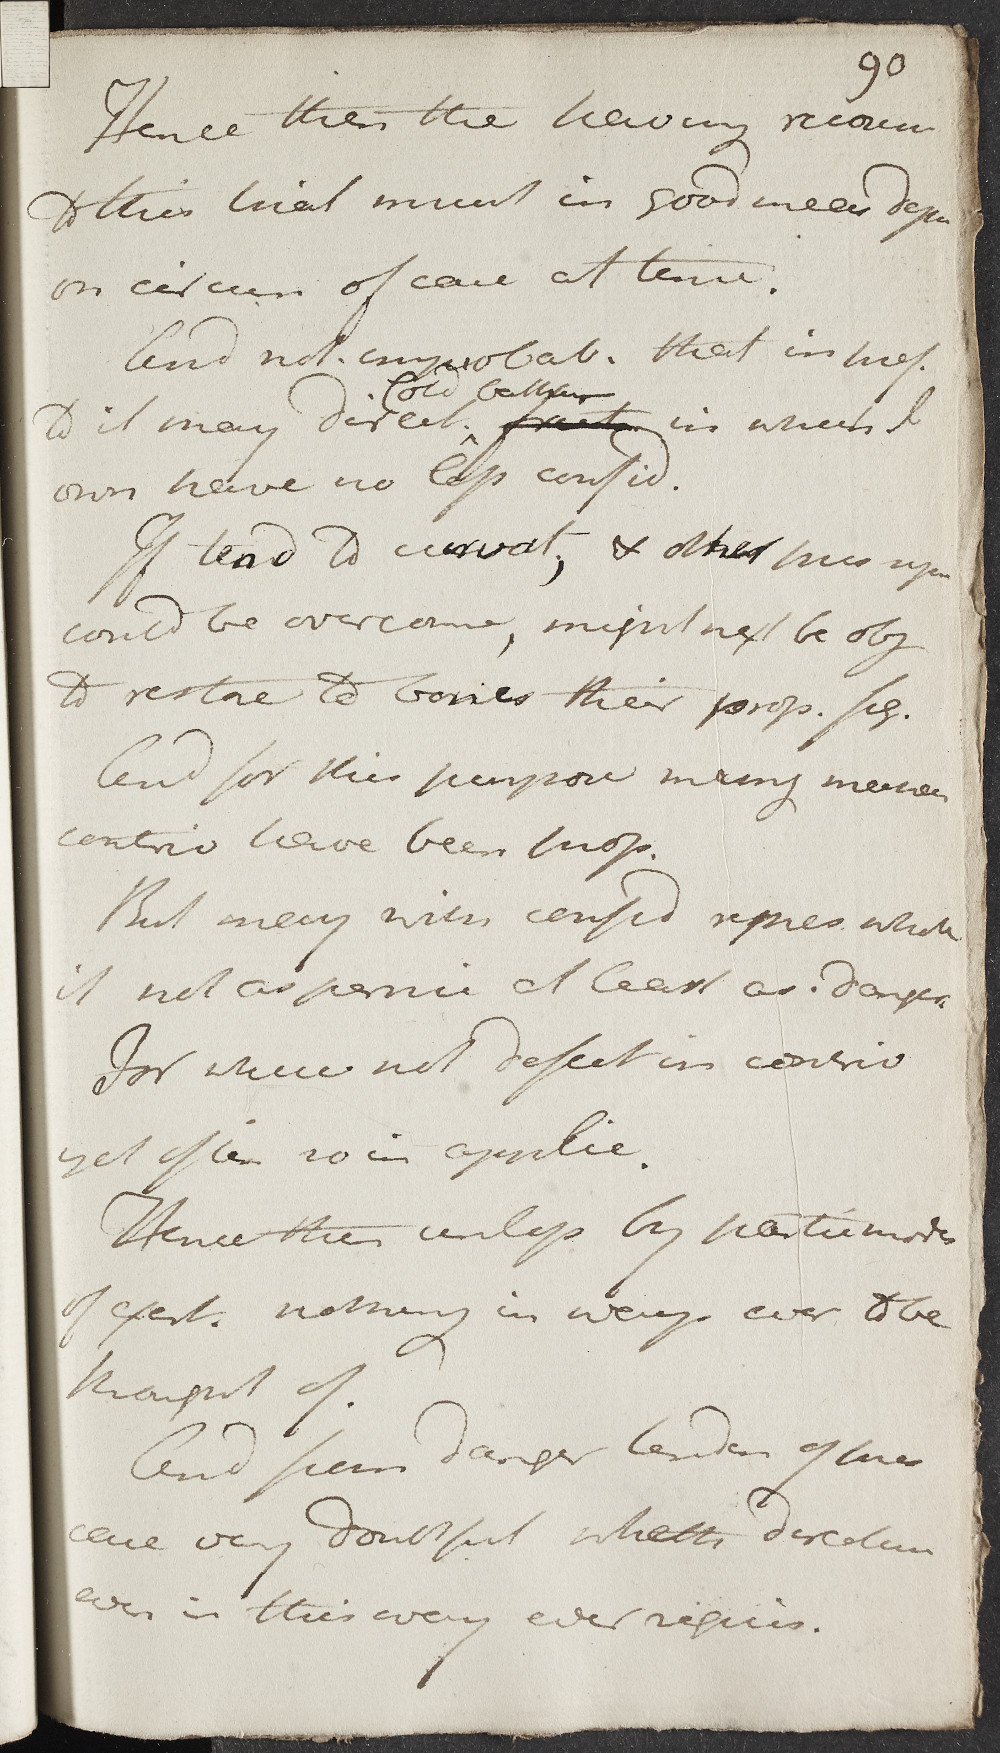 90
Hence then the having recour
to this trial must in good meas depen
on circum of case at time.
And not improbab. that in pref.
to it may direct. Cold bathing in which I
own have no less confid.
If tend to curvat, & other pres upon
could be overcome, might next be obj
to restore to bones their prop. fig.
And for this purpose many mechan
contriv have been prop.
But many with confid repres. which
if not as pernic at least as danger.
For where not defect in contriv
yet often so in applic.
Hence then unless by partic modes
of exert. nothing in way ever to be
thought of.
And from danger tenden of pres
case very doubtful wheth direction
even in this way ever requis.